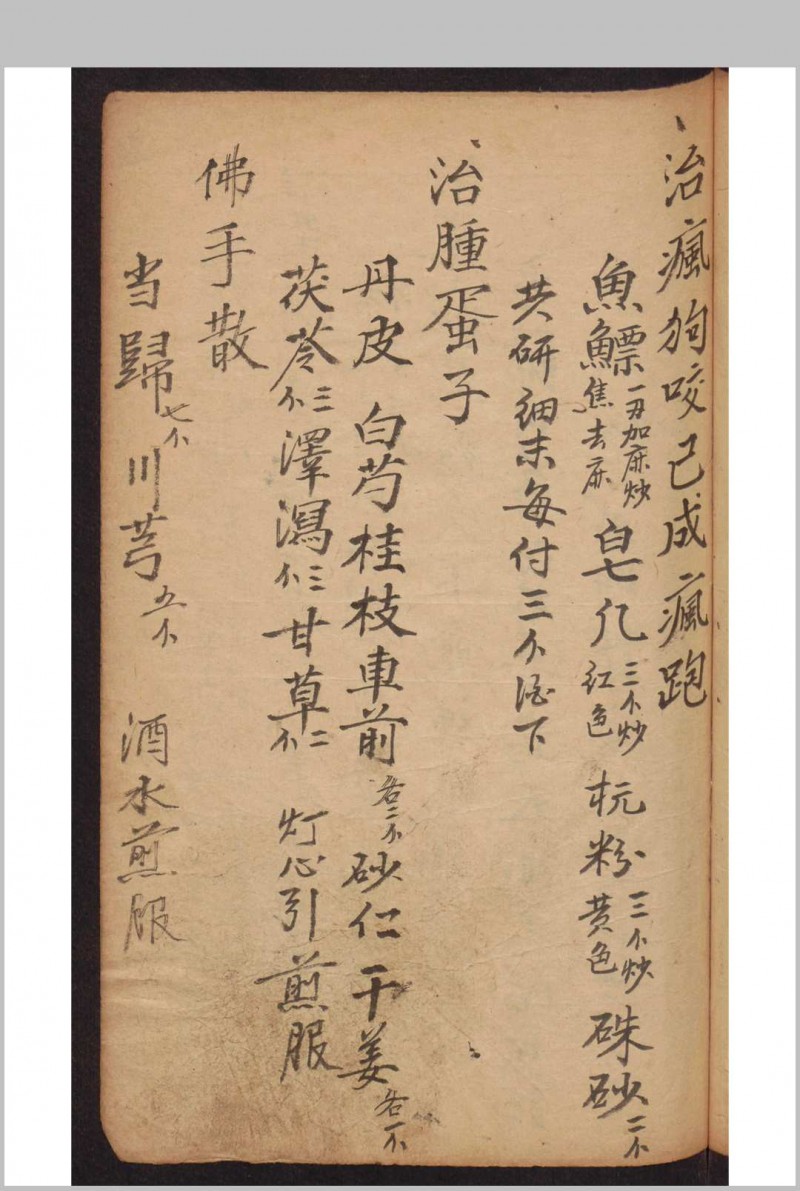 治瘋狗咬已成瘋跑
魚鰾一刄加麻炒焦去麻 皂凣三个炒紅色 杬粉三个炒黄色 硃砂二个
共研細末每付三个酒下
治腫蛋子
丹皮 白芍桂枝車前各二个砂仁干姜各一个
茯苓三个澤瀉三个甘草二个 灯心引煎服
佛手散
当歸七个川芎五个 酒水煎服